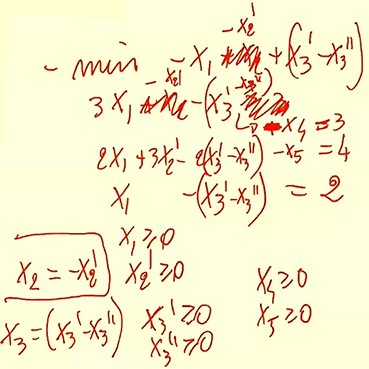 - min -x₁ -x₂' +(x₃' -x₃'')
3x₁ -x₂' -(x₃' -x₃'')
-x₄ = 3
2x₁ + 3x₂' - 2(x₃' -x₃'') -x₅ = 4
x₁ -(x₃' -x₃'') = 2
x₁ ≥ 0
x₂ = -x₂' x₂' ≥ 0 x₄ ≥ 0
x₃ = (x₃' -x₃'') x₃' ≥ 0 x₅ ≥ 0
x₃'' ≥ 0